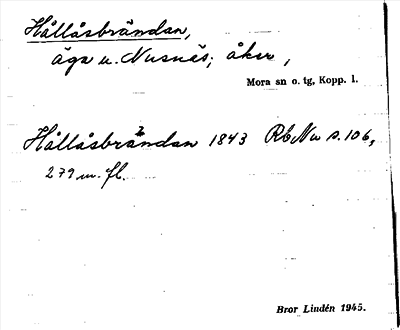 Hållåsbrändan,
äga u. Nusnäs; åker,
Mora sn o. tg, Kopp. l.
Hållåsbrändan 1843 RbNu s. 106,
279 m. fl.
Bror Lindén 1945.